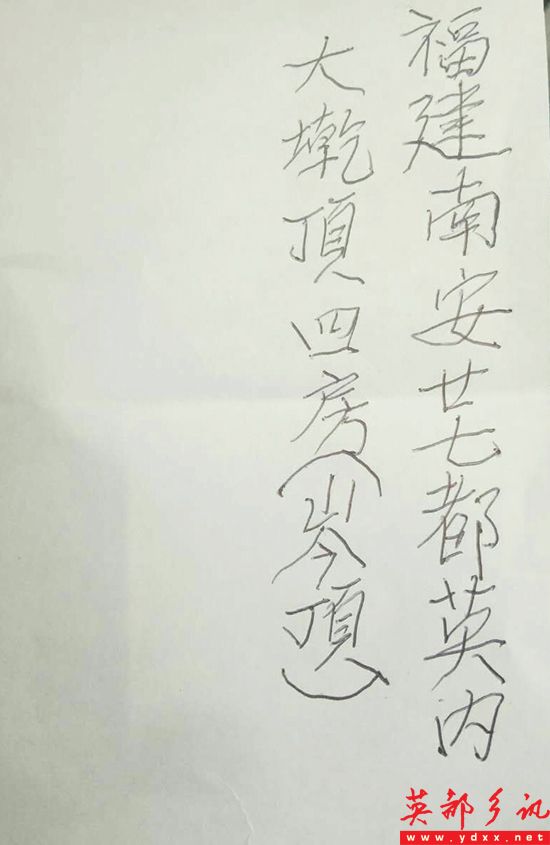 福建南安廿七都英内
大墘頂四房(岑頂)
英都乡讯
www.ydxx.net